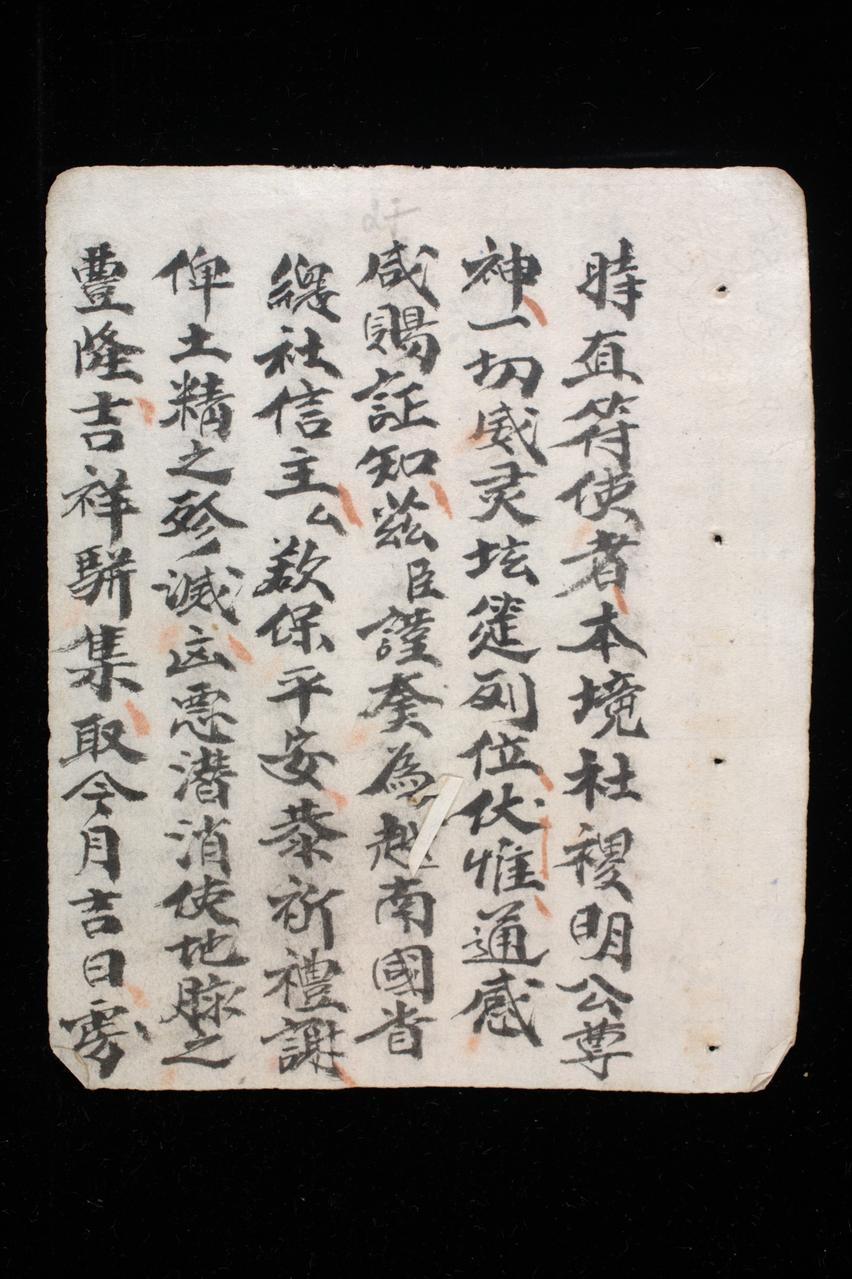 時直符使者本境社稷明公尊
神一切威灵坛筵列位伏惟通感
咸賜証知茲臣謹奏為越南國省
總社信主厶欲保平安恭祈禮謝
俾土精之殄滅凶悪潜消使地脉之
豊隆吉祥駢集取今月吉日虔